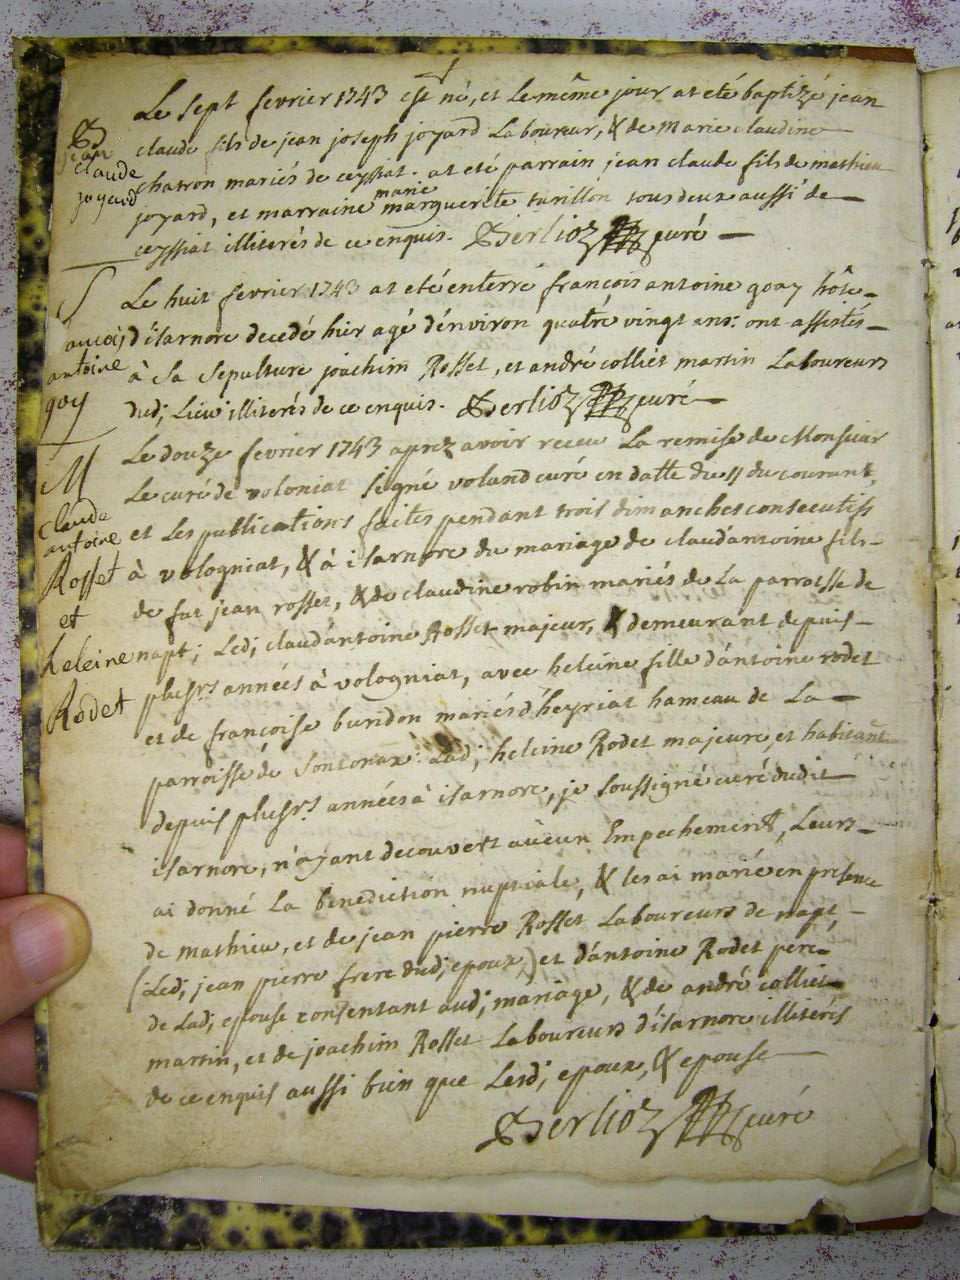 B
jean
claude
joyard
Le sept fevrier 1743 est né, et le même jour at eté baptizé jean
claude fils de jean joseph joyard Laboureur, & de Marie claudine
chatron mariés de ceyssiat. at eté parrain jean claude fils de mathieu
joyard, et marraine marie marguerite turillon tous deux aussi de
ceyssiat illiterés de ce enquis. Berlioz curé
S
antoine
goy
Le huit fevrier 1743 at eté enterré françois antoine goay hôte
d'isarnore decedé hier agé d'environ quatre vingt ans: ont assistés
à sa sepulture joachim Rosset, et andré colliet martin Laboureurs
dud; Lieu illiterés de ce enquis. Berlioz curé
M
claude
antoine
Rosset
et
heleine
Rodet
Le douze fevrier 1743 aprez avoir receu La remise de Monsieur
Le curé de voloniat signé voland curé en datte du 11 du courant,
et Les publications faites pendant trois dimanches consecutifs
à vologniat, & à isarnore du mariage de claud'antoine fils
de fut jean rosset, & de claudine robin mariés de La parroisse de
napt; Led; claud'antoine Rosset majeur, & demeurant depuis
plusrs années à vologniat, avec heleine fille d'antoine rodet
et de françoise buridon mariés d'heyriat hameau de La
parroisse de sontonax: Lad; heleine Rodet majeure, et habitant
depuis plusrs années à isarnore, je soussigné curé dudit
isarnore, n'ayant decouvert aucun Empechement, Leurs
ai donné La benediction nuptiale, & les ai marié en presence
de mathieu, et de jean pierre Rosset Laboureurs de napt
(Led; jean pierre frere dud; epoux,) et d'antoine Rodet pere
de Lad; epouse consentant aud; mariage, & de andré colliet
martin, et de joachim Rosset Laboureurs d'isarnore illiterés
de ce enquis aussi bien que Lesd; epoux, & epouse
Berlioz curé